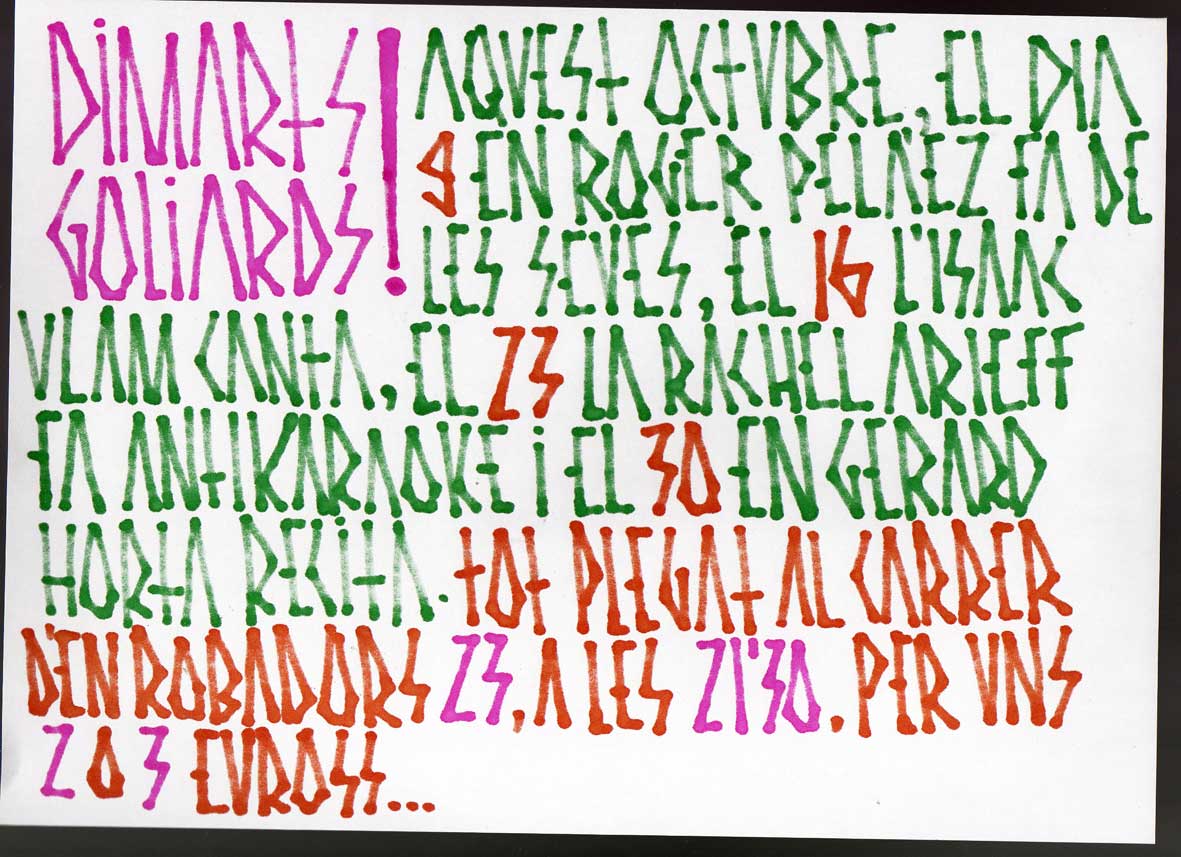 DIMARTS
GOLIARDS!
AQVEST OCTVBRE, EL DIA
9 EN ROGER PELÁEZ FA DE
LES SEVES, EL 16 L'ISAAC
VLAM CANTA, EL 23 LA RÀCHEL ARIEFF
FA ANTIKARAOKE i EL 30 EN GERARD
HORTA RECITA. TOT PLEGAT AL CARRER
D'EN ROBADORS 23, A LES 21'30. PER VNS
2 O 3 EVROSS...